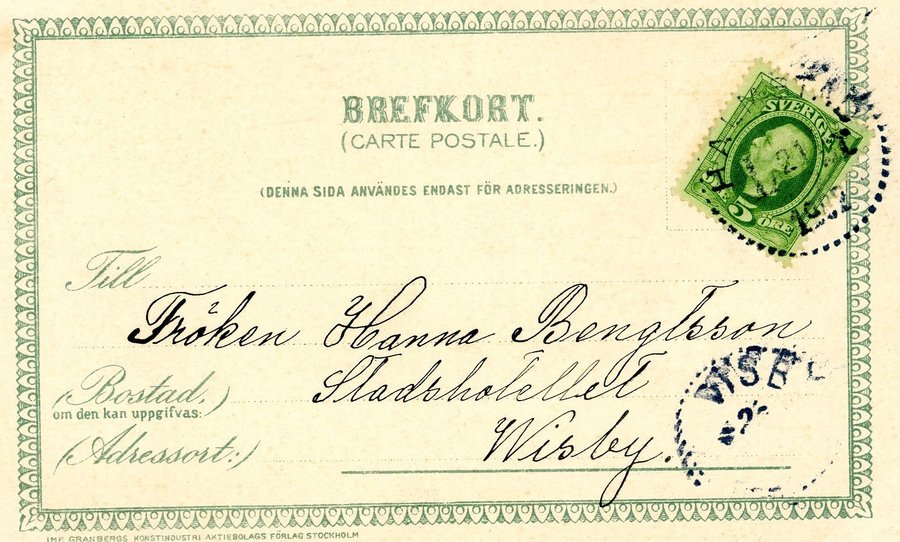 BREFKORT.
(CARTE POSTALE.)
(DENNA SIDA ANVÄNDES ENDAST FÖR ADRESSERINGEN.)
SVERIGE
5 ÖRE
21
1902
Till
Fröken Hanna Bengtsson
Stadshotellet
Wisby.
(Bostad,)
om den kan uppgifvas:
(Adressort:)
VISBY
IMP. GRANBERGS KONSTINDUSTRI AKTIEBOLAGS FÖRLAG STOCKHOLM